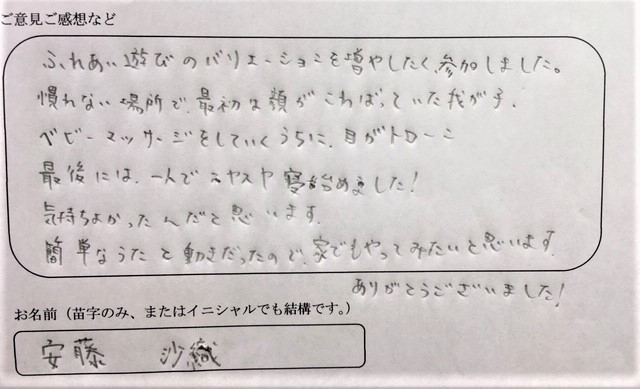 ご意見ご感想など
ふれあい遊びのバリエーションを増やしたく、参加しました。
慣れない場所で、最初は顔がこわばっていた我が子、
ベビーマッサージをしていくうちに、目がトローン
最後には、一人でスヤスヤ寝始めました!
気持ちよかったんだと思います。
簡単なうたと動きだったので、家でもやってみたいと思います。
ありがとうございました!
お名前(苗字のみ、またはイニシャルでも結構です。)
安藤 沙織